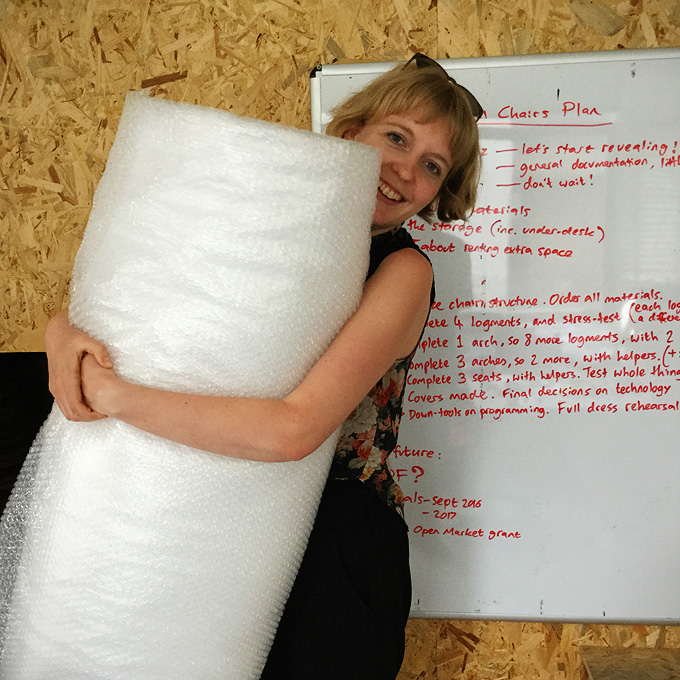 Chairs Plan
— let's start revealing!
— general documentation,
— don't wait!
the storage (inc. under-desk)
about renting extra space
chair structure. Order all materials.
4 logments, and stress-test (each
a
1 arch, so 8 more logments, with 2
3 arches, so 2 more, with helpers. (+
Complete 3 seats, with helpers. Test whole thing
Covers made. Final decisions on technology
Down-tools on programming. Full dress rehearsal
future:
?
- Sept 2016
- 2017
Open Market grant